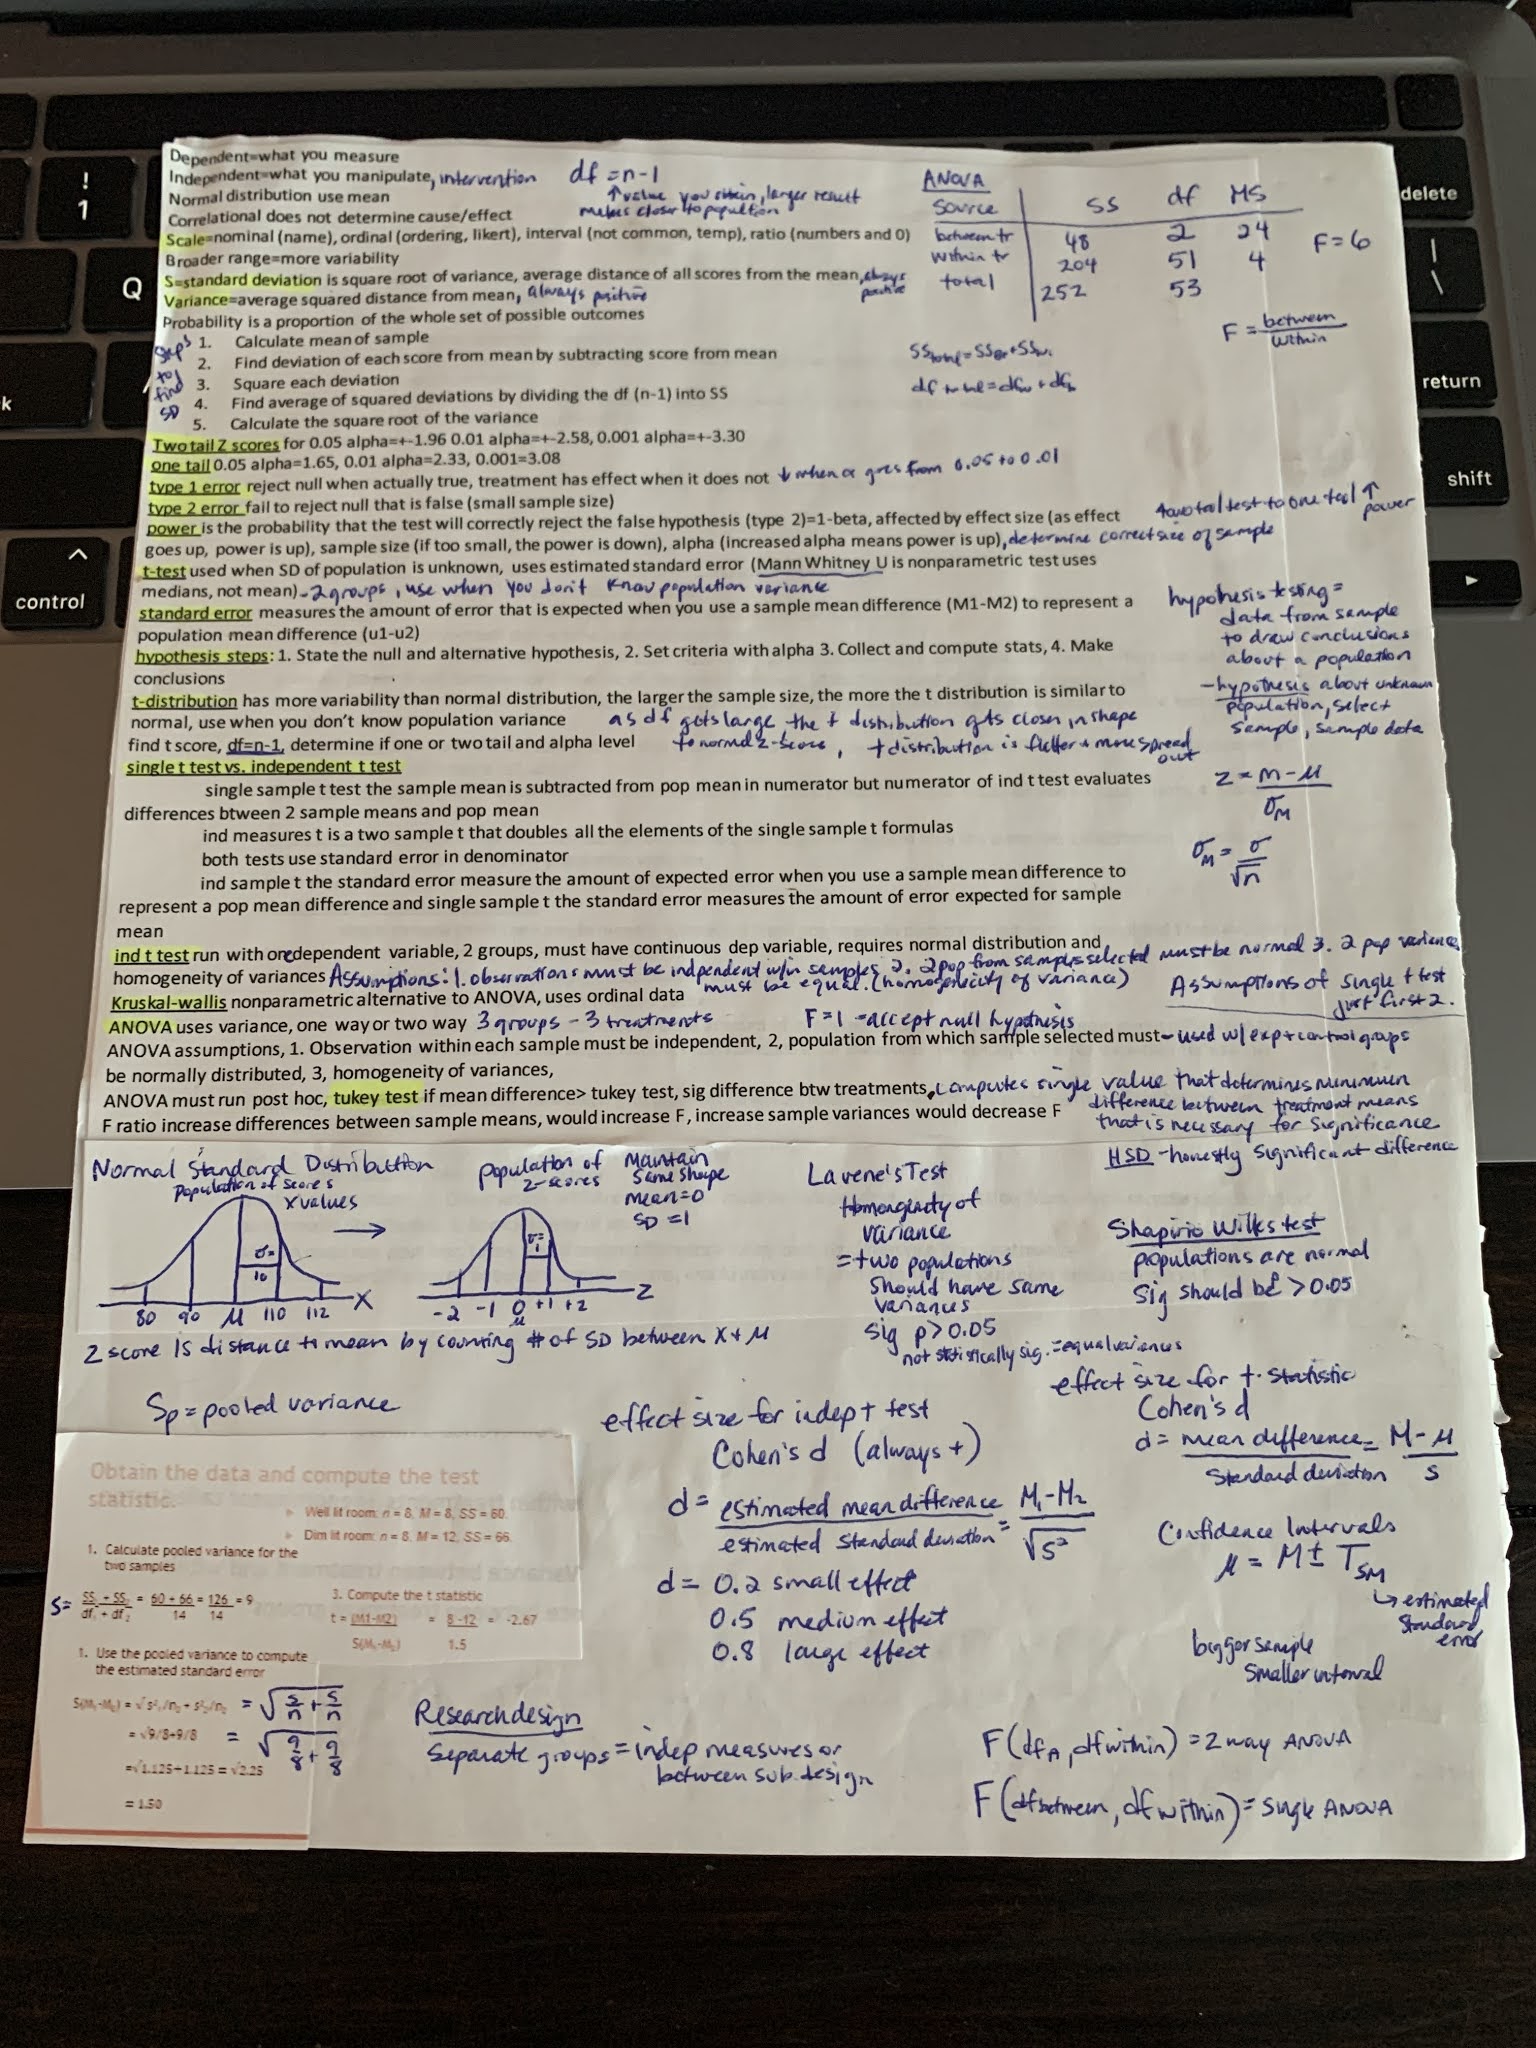 Dependent=what you measure
Independent=what you manipulate, intervention
df = n-1
↑ value you obtain, larger result
makes closer to popultion
Normal distribution use mean
Correlational does not determine cause/effect
Scale=nominal (name), ordinal (ordering, likert), interval (not common, temp), ratio (numbers and 0)
Broader range=more variability
S=standard deviation is square root of variance, average distance of all scores from the mean, always positive
Variance=average squared distance from mean, always positive
Probability is a proportion of the whole set of possible outcomes
ANOVA
Source SS df MS
between tr 48 2 24 F=6
within tr 204 51 4
total 252 53
F = between / within
SS total = SS +SS
df = df + df
Steps to find SD
1. Calculate mean of sample
2. Find deviation of each score from mean by subtracting score from mean
3. Square each deviation
4. Find average of squared deviations by dividing the df (n-1) into SS
5. Calculate the square root of the variance
Two tail Z scores for 0.05 alpha=+-1.96 0.01 alpha=+-2.58, 0.001 alpha=+-3.30
one tail 0.05 alpha=1.65, 0.01 alpha=2.33, 0.001=3.08
type 1 error reject null when actually true, treatment has effect when it does not ↓ when α goes from 0.05 to 0.01
type 2 error fail to reject null that is false (small sample size)
power is the probability that the test will correctly reject the false hypothesis (type 2)=1-beta, affected by effect size (as effect
goes up, power is up), sample size (if too small, the power is down), alpha (increased alpha means power is up), determine correct size of sample
test to one tail ↑ power
t-test used when SD of population is unknown, uses estimated standard error (Mann Whitney U is nonparametric test uses
medians, not mean) - 2 groups, use when you don't know population variance
standard error measures the amount of error that is expected when you use a sample mean difference (M1-M2) to represent a
population mean difference (u1-u2)
hypothesis steps: 1. State the null and alternative hypothesis, 2. Set criteria with alpha 3. Collect and compute stats, 4. Make
conclusions
hypothesis testing =
data from sample
to draw conclusions
about a population
-hypothesis about unknown
population, select
sample, sample data
t-distribution has more variability than normal distribution, the larger the sample size, the more the t distribution is similar to
normal, use when you don't know population variance as df gets large the t distribution gets closer in shape
find t score, df=n-1, determine if one or two tail and alpha level to normal z-score, t distribution is flatter + more spread out
single t test vs. independent t test
single sample t test the sample mean is subtracted from pop mean in numerator but numerator of ind t test evaluates
differences btween 2 sample means and pop mean
ind measures t is a two sample t that doubles all the elements of the single sample t formulas
both tests use standard error in denominator
ind sample t the standard error measure the amount of expected error when you use a sample mean difference to
represent a pop mean difference and single sample t the standard error measures the amount of error expected for sample
mean
Z = M - μ / σM
σM = σ / √n
ind t test run with one dependent variable, 2 groups, must have continuous dep variable, requires normal distribution and
homogeneity of variances Assumptions: 1. observations must be indpendent w/in samples 2. 2 pop from samples selected must be normal 3. 2 pop variances
must be equal. (homogenicity of variance)
Assumptions of single t test
just first 2.
Kruskal-wallis nonparametric alternative to ANOVA, uses ordinal data
ANOVA uses variance, one way or two way 3 groups - 3 treatments F=1 -accept null hypothesis
ANOVA assumptions, 1. Observation within each sample must be independent, 2, population from which sample selected must - used w/ exp + control groups
be normally distributed, 3, homogeneity of variances,
ANOVA must run post hoc, tukey test if mean difference> tukey test, sig difference btw treatments, computes single value that determines minimum
difference between treatment means
that is necessary for significance
F ratio increase differences between sample means, would increase F, increase sample variances would decrease F
HSD - honestly significant difference
Normal Standard Distribution
Population of scores
X values
σ= 10
80 90 μ 110 112 X
population of z-scores
Maintain
same shape
mean=0
SD=1
σ= 1
-2 -1 0 +1 +2 Z
μ
Z score is distance t mean by counting # of SD between X + μ
Lavene's Test
Homongenity of
variance
= two populations
should have same
variances
sig p>0.05
not statistically sig. = equal variances
Shapirio Wilks test
populations are normal
Sig should be >0.05
Sp = pooled variance
Obtain the data and compute the test
statistic.
Well lit room: n = 8, M = 8, SS = 60.
Dim lit room: n = 8, M = 12, SS = 66.
1. Calculate pooled variance for the
two samples
S= SS1 + SS2 / df1 + df2 = 60 + 66 / 14 = 126 / 14 = 9
3. Compute the t statistic
t = (M1-M2) / S(M1-M2) = 8 -12 / 1.5 = -2.67
1. Use the pooled variance to compute
the estimated standard error
S(M1-M2) = √ s²1/n1 + s²2/n2 = √ s/n + s/n
= √9/8+9/8 = √ 9/8 + 9/8
=√1.125+1.125 = √2.25
= 1.50
effect size for indep t test
Cohen's d (always +)
d = estimated mean difference / estimated standard deviation = M1-M2 / √S²
d = 0.2 small effect
0.5 medium effect
0.8 large effect
effect size for t-statistic
Cohen's d
d = mean difference / standard deviation = M-μ / S
Confidence Intervals
μ = M ± TSM
↳ estimated
standard
error
bigger sample
smaller interval
Research design
separate groups = indep measures or
between sub. design
F (dfA, df within) = 2 way ANOVA
F (df between, df within) = single ANOVA
! 1
Q
k
control
^
delete
| \
return
shift